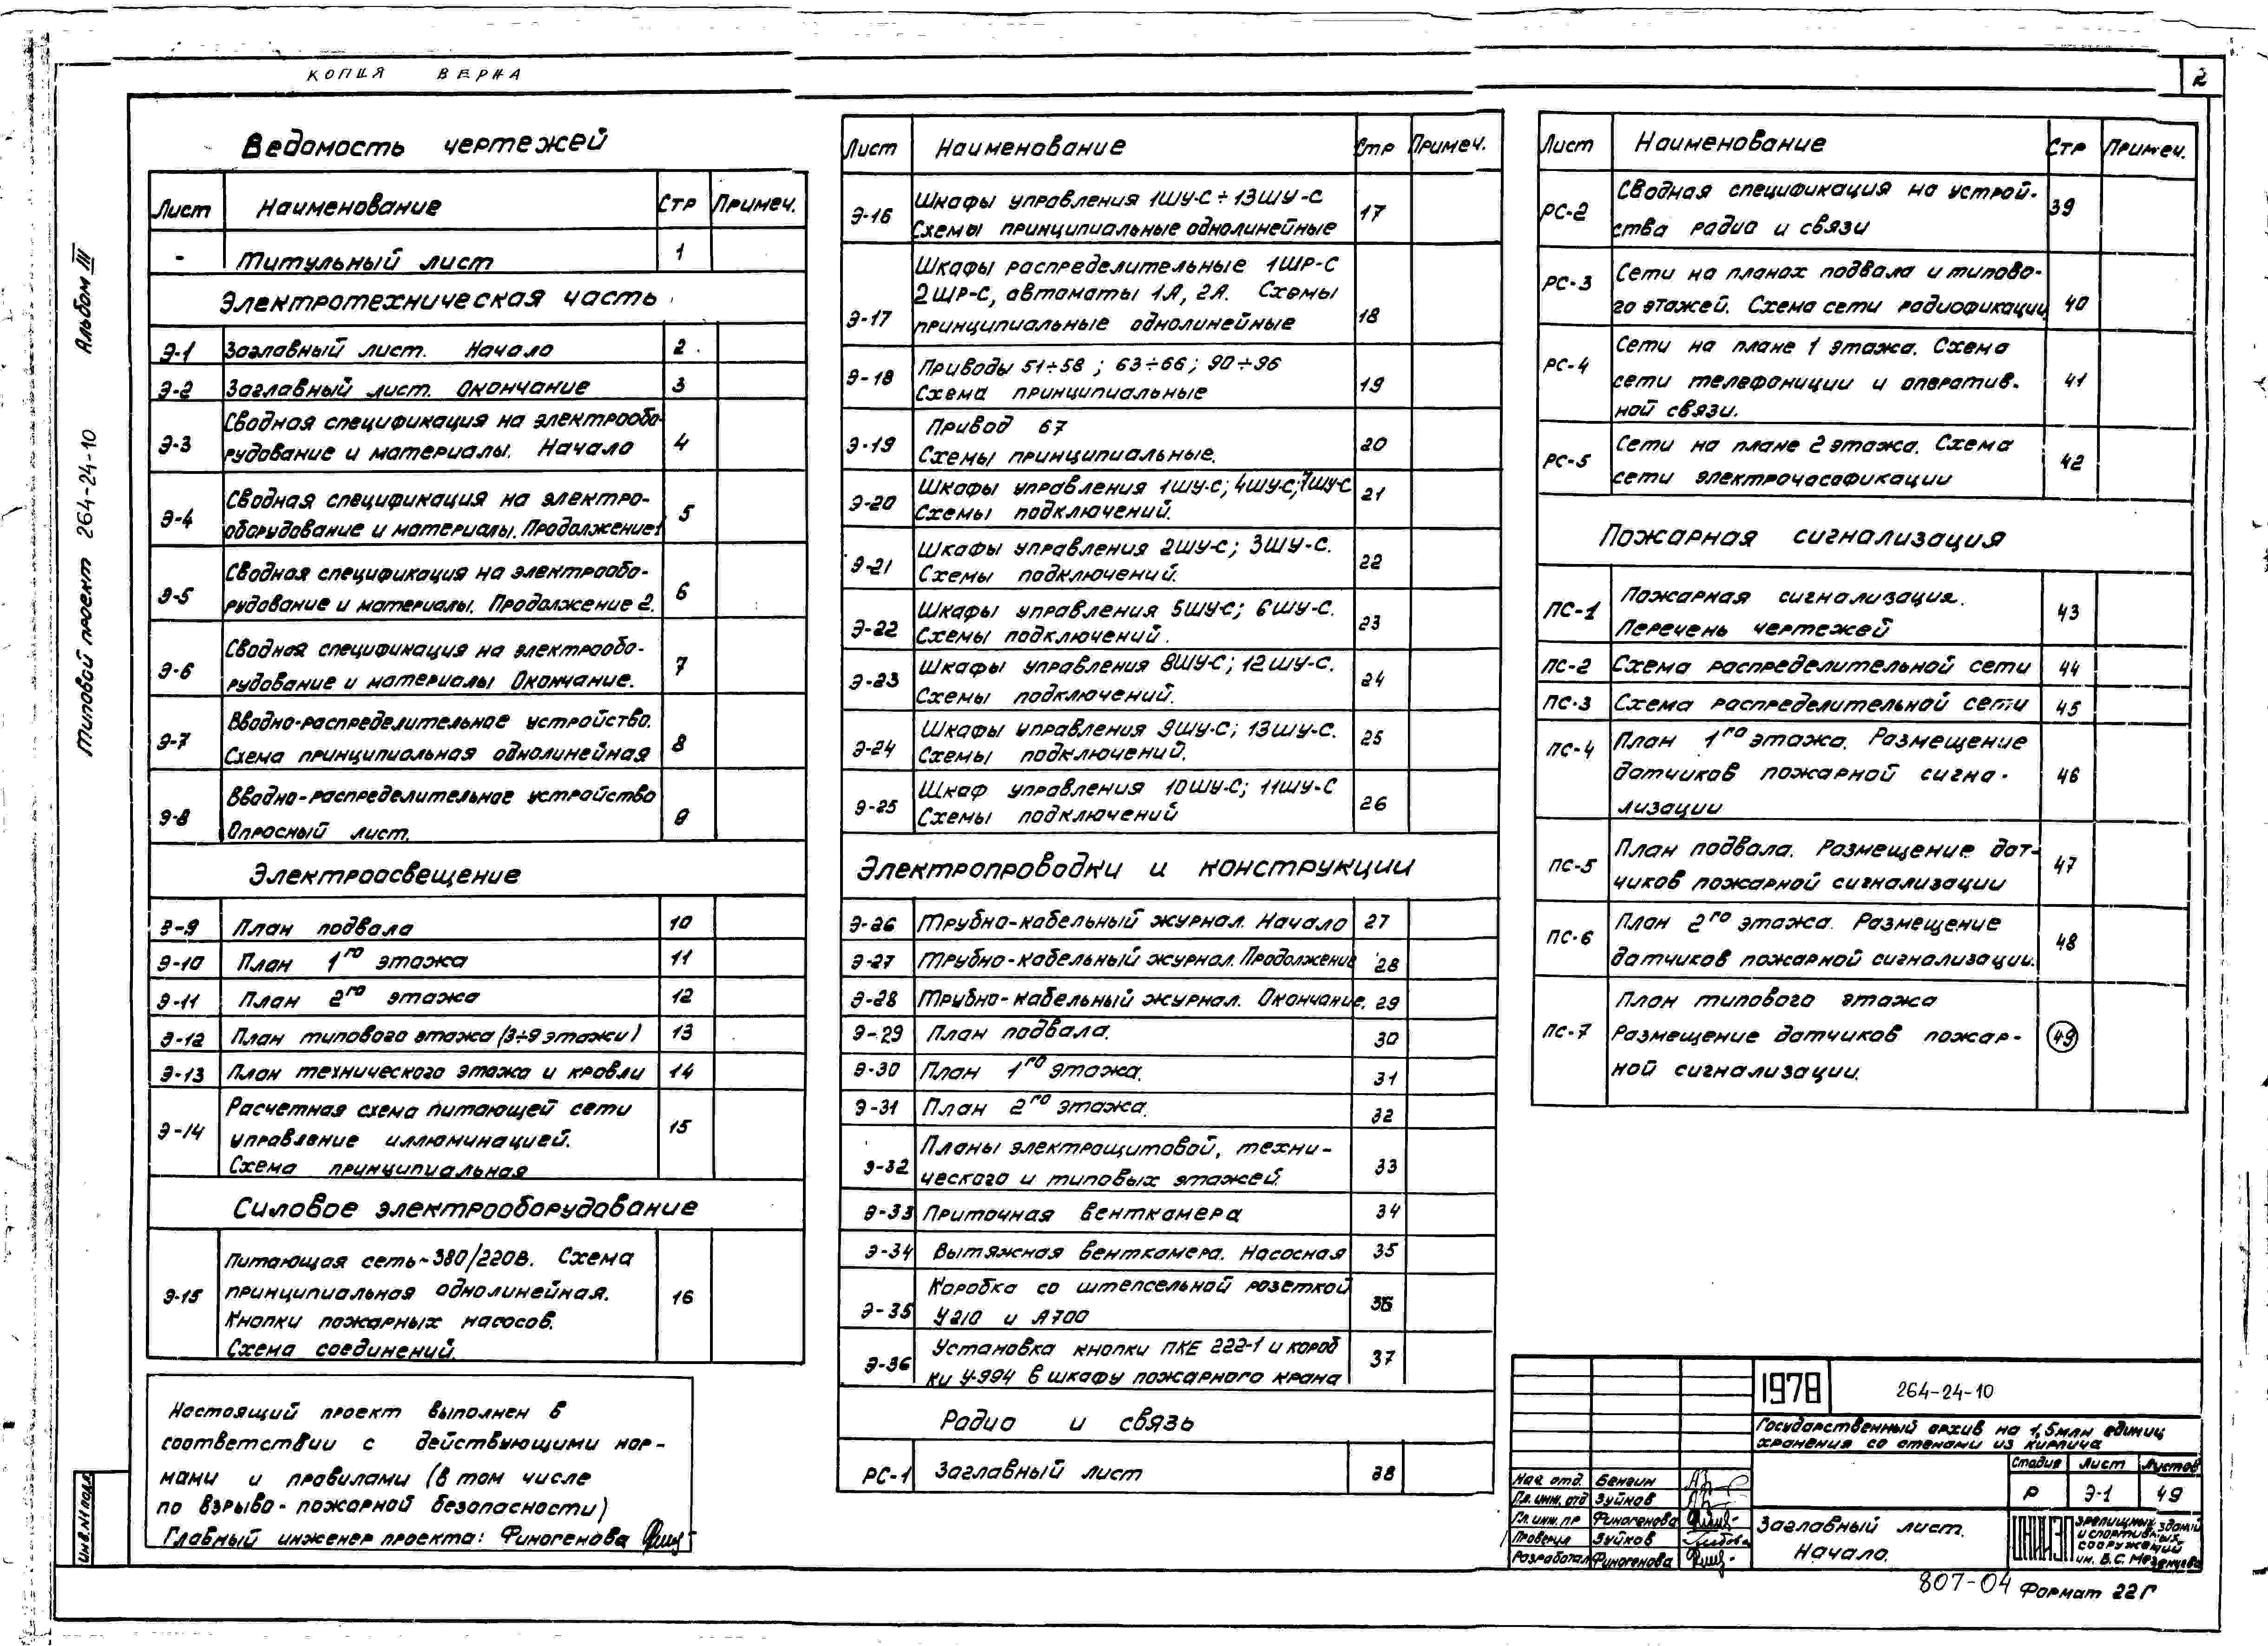 КОПИЯ ВЕРНА
2
Альбом III
Типовой проект 264-24-10
Инв.№ подл.
Ведомость чертежей
Лист Наименование Стр Примеч.
- Титульный лист 1
Электротехническая часть
Э-1 Заглавный лист. Начало 2
Э-2 Заглавный лист. Окончание 3
Э-3 Сводная спецификация на электрообо-
рудование и материалы. Начало 4
Э-4 Сводная спецификация на электро-
оборудование и материалы. Продолжение 1 5
Э-5 Сводная спецификация на электрообо-
рудование и материалы. Продолжение 2. 6
Э-6 Сводная спецификация на электрообо-
рудование и материалы Окончание. 7
Э-7 Вводно-распределительное устройство.
Схема принципиальная однолинейная 8
Э-8 Вводно-распределительное устройство
Опросный лист. 9
Электроосвещение
Э-9 План подвала 10
Э-10 План 1го этажа 11
Э-11 План 2го этажа 12
Э-12 План типового этажа (3÷9 этажи) 13
Э-13 План технического этажа и кровли 14
Э-14 Расчетная схема питающей сети
управление иллюминацией.
Схема принципиальная 15
Силовое электрооборудование
Э-15 Питающая сеть ~380/220в. Схема
принципиальная однолинейная.
Кнопки пожарных насосов.
Схема соединений. 16
Настоящий проект выполнен в
соответствии с действующими нор-
мами и правилами (в том числе
по взрыво-пожарной безопасности)
Главный инженер проекта: Финогенова
Лист Наименование Стр Примеч.
Э-16 Шкафы управления 1ШУ-С ÷ 13ШУ-С
Схемы принципиальные однолинейные 17
Э-17 Шкафы распределительные 1ШР-С
2ШР-С, автоматы 1А, 2А. Схемы
принципиальные однолинейные 18
Э-18 Приводы 51÷58; 63÷66; 90÷96
Схема принципиальные 19
Э-19 Привод 67
Схемы принципиальные. 20
Э-20 Шкафы управления 1ШУ-С; 4ШУ-С; 7ШУ-С
Схемы подключений. 21
Э-21 Шкафы управления 2ШУ-С; 3ШУ-С.
Схемы подключений. 22
Э-22 Шкафы управления 5ШУ-С; 6ШУ-С.
Схемы подключений. 23
Э-23 Шкафы управления 8ШУ-С; 12ШУ-С.
Схемы подключений. 24
Э-24 Шкафы управления 9ШУ-С; 13ШУ-С.
Схемы подключений. 25
Э-25 Шкаф управления 10ШУ-С; 11ШУ-С
Схемы подключений 26
Электропроводки и конструкции
Э-26 Трубно-кабельный журнал. Начало 27
Э-27 Трубно-кабельный журнал. Продолжение 28
Э-28 Трубно-кабельный журнал. Окончание. 29
Э-29 План подвала. 30
Э-30 План 1го этажа. 31
Э-31 План 2го этажа. 32
Э-32 Планы электрощитовой, техни-
ческого и типовых этажей. 33
Э-33 Приточная венткамера 34
Э-34 Вытяжная венткамера. Насосная 35
Э-35 Коробка со штепсельной розеткой
У210 и А700 36
Э-36 Установка кнопки ПКЕ 222-1 и короб
ки У-994 в шкафу пожарного крана 37
Радио и связь
РС-1 Заглавный лист 38
Лист Наименование Стр Примеч.
РС-2 Сводная спецификация на устрой-
ства радио и связи 39
РС-3 Сети на планах подвала и типово-
го этажей. Схема сети радиофикации 40
РС-4 Сети на плане 1 этажа. Схема
сети телефонизации и оператив-
ной связи. 41
РС-5 Сети на плане 2 этажа. Схема
сети электрочасофикации 42
Пожарная сигнализация
ПС-1 Пожарная сигнализация.
Перечень чертежей 43
ПС-2 Схема распределительной сети 44
ПС-3 Схема распределительной сети 45
ПС-4 План 1го этажа. Размещение
датчиков пожарной сигна-
лизации 46
ПС-5 План подвала. Размещение дат-
чиков пожарной сигнализации 47
ПС-6 План 2го этажа. Размещение
датчиков пожарной сигнализации. 48
ПС-7 План типового этажа
Размещение датчиков пожар-
ной сигнализации. 49
1978 264-24-10
Государственный архив на 1,5 млн единиц
хранения со стенами из кирпича
Стадия Лист Листов
Р Э-1 49
Нач отд. Бенгин
Гл. инж. отд Зуйков
Гл. инж. пр Финогенова
Проверил Зуйков
Разработал Финогенова
Заглавный лист.
Начало.
ЦНИИЭП
зрелищных зданий
и спортивных
сооружений
им. Б.С. Мезенцева
807-04 Формат 22Г